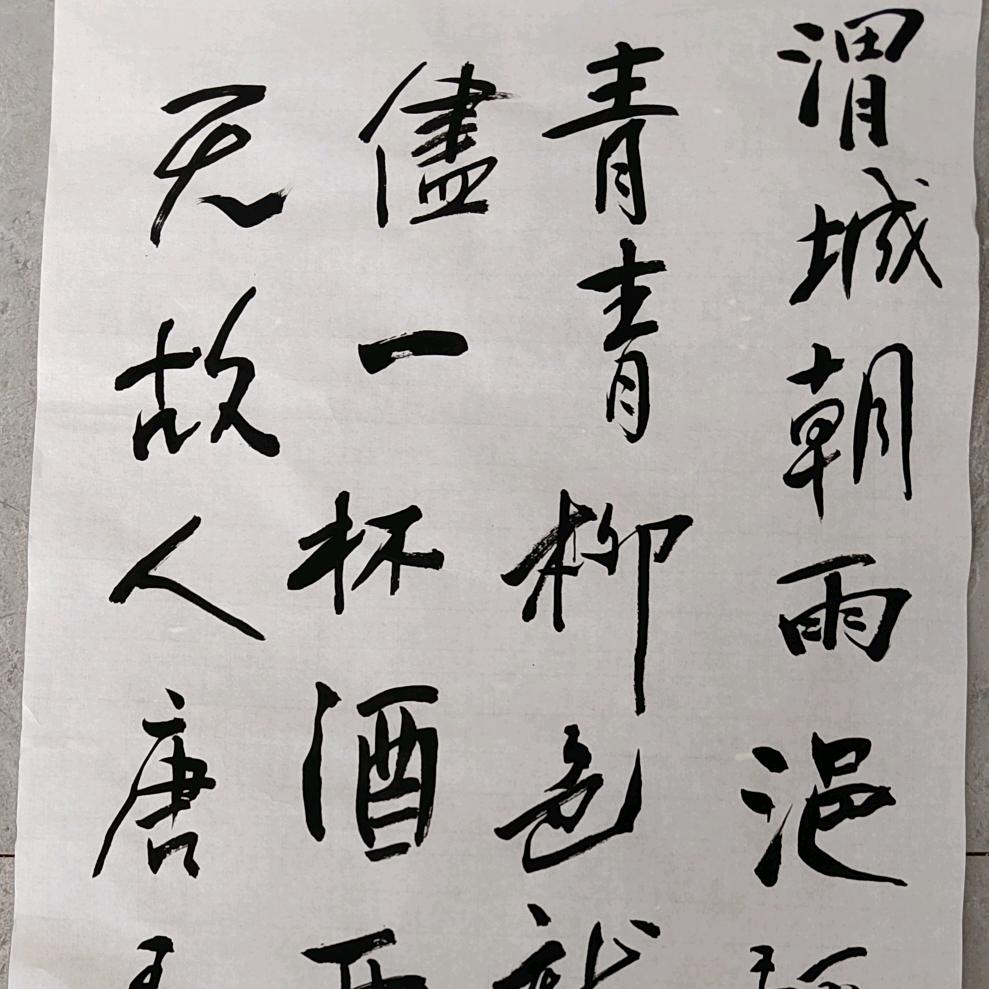 渭城朝雨浥
青青柳色
儘一杯酒
无故人唐